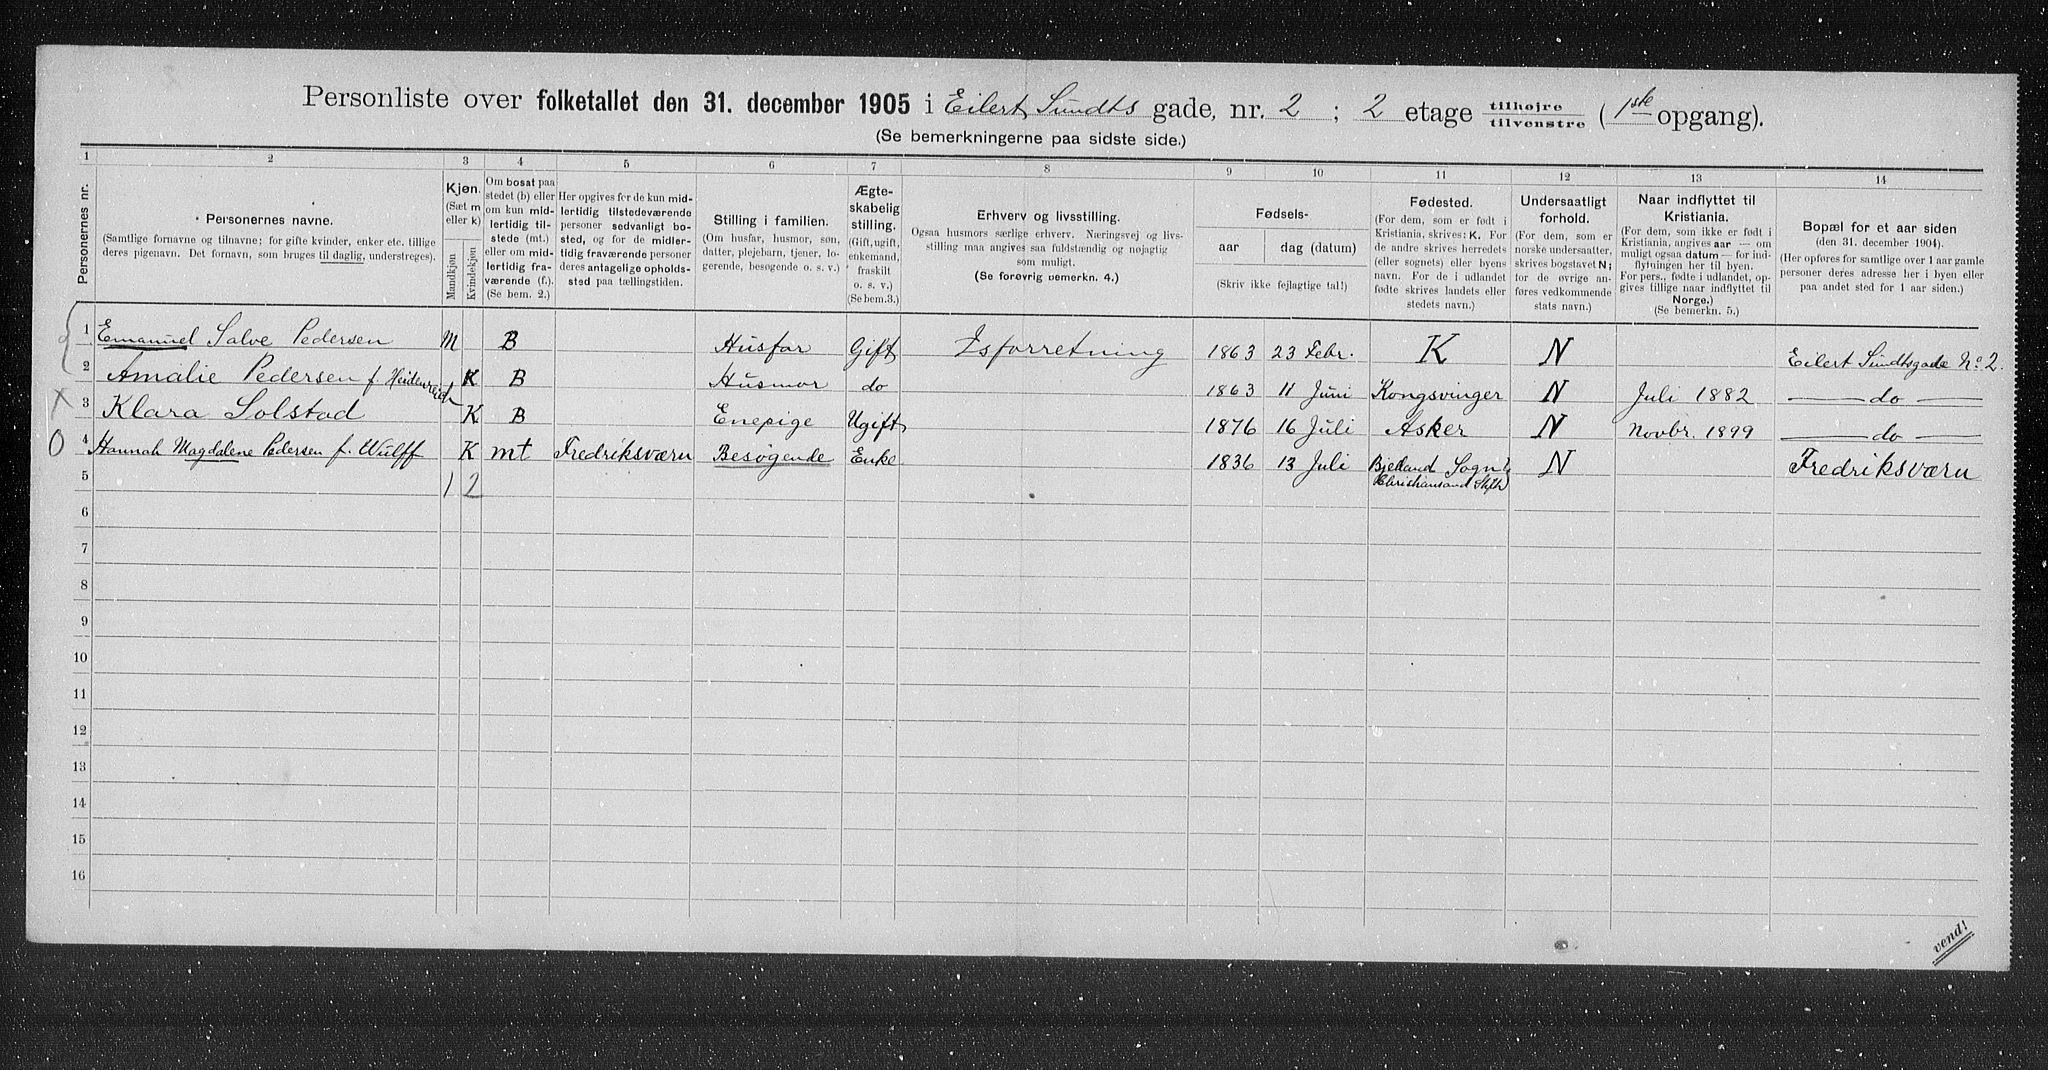 Personliste over folketallet den 31. december 1905 i Eilert Sundts gade, nr. 2 ; 2 etage tilhøjre tilvenstre (1ste opgang).
(Se bemerkningerne paa sidste side.)
1 2 3 4 5 6 7 8 9 10 11 12 13 14
Personernes nr.
Personernes navne.
(Samtlige fornavne og tilnavne; for gifte kvinder, enker etc. tillige
deres pigenavn. Det fornavn, som bruges til daglig, understreges).
Kjøn.
(Sæt m
eller k)
Mandkjøn
Kvindekjøn
Om bosat paa
stedet (b) eller
om kun mid-
lertidig til-
stede (mt.)
eller om mid-
lertidig fra-
værende (f.).
(Se bem. 2.)
Her opgives for de kun mid-
lertidig tilstedeværende
personer sedvanligt bo-
sted, og for de midler-
tidig fraværende personer
deres antagelige opholds-
sted paa tællingstiden.
Stilling i familien.
(Om husfar, husmor, søn,
datter, plejebarn, tjener, lo-
gerende, besøgende o. s. v.)
Ægte-
skabelig
stilling.
(Gift, ugift,
enkemand,
fraskilt
o. s. v.)
(Se bem.3.)
Erhverv og livsstilling.
Ogsaa husmors særlige erhverv. Næringsvej og livs-
stilling maa angives saa fuldstændig og nøjagtig
som muligt.
(Se forøvrig bemerkn. 4.)
Fødsels-
aar dag (datum)
(Skriv ikke fejlagtige tal!)
Fødested.
(For dem, som er født i
Kristiania, skrives: K. For
de andre skrives herredets
(eller sognets) eller byens
navn. For de i udlandet
fødte skrives landets eller
stedets navn.)
Undersaatligt
forhold.
(For dem, som er
norske undersaatter,
skrives bogstavet N;
for de øvrige an-
føres vedkommende
stats navn.)
Naar indflyttet til
Kristiania.
(For dem, som ikke er født i
Kristiania, angives aar — om
muligt ogsaa datum — for ind-
flytningen her til byen.
For pers., fødte i udlandet, op-
gives tillige naar indflyttet til
Norge.)
(Se bemerkn. 5.)
Bopæl for et aar siden
(den 31. december 1904).
(Her opføres for samtlige over 1 aar gamle
personer deres adresse her i byen eller
paa andet sted for 1 aar siden.)
1 Emanuel Salve Pedersen M B Husfar Gift Isforretning 1863 23 Febr. K N Eilert Sundtsgade No. 2.
2 Amalie Pedersen f. Heidenreich K B Husmor do 1863 11 Juni Kongsvinger N Juli 1882 — do —
X 3 Klara Solstad K B Enepige Ugift 1876 16 Juli Asker N Novbr. 1899 — do —
0 4 Hannah Magdalene Pedersen f. Wulff K mt Fredriksværn Besøgende Enke. 1836 13 Juli Bjelland Sogn N Fredriksværn
Christiansand Stift
5 1 2
6
7
8
9
10
11
12
13
14
15
16
vend!